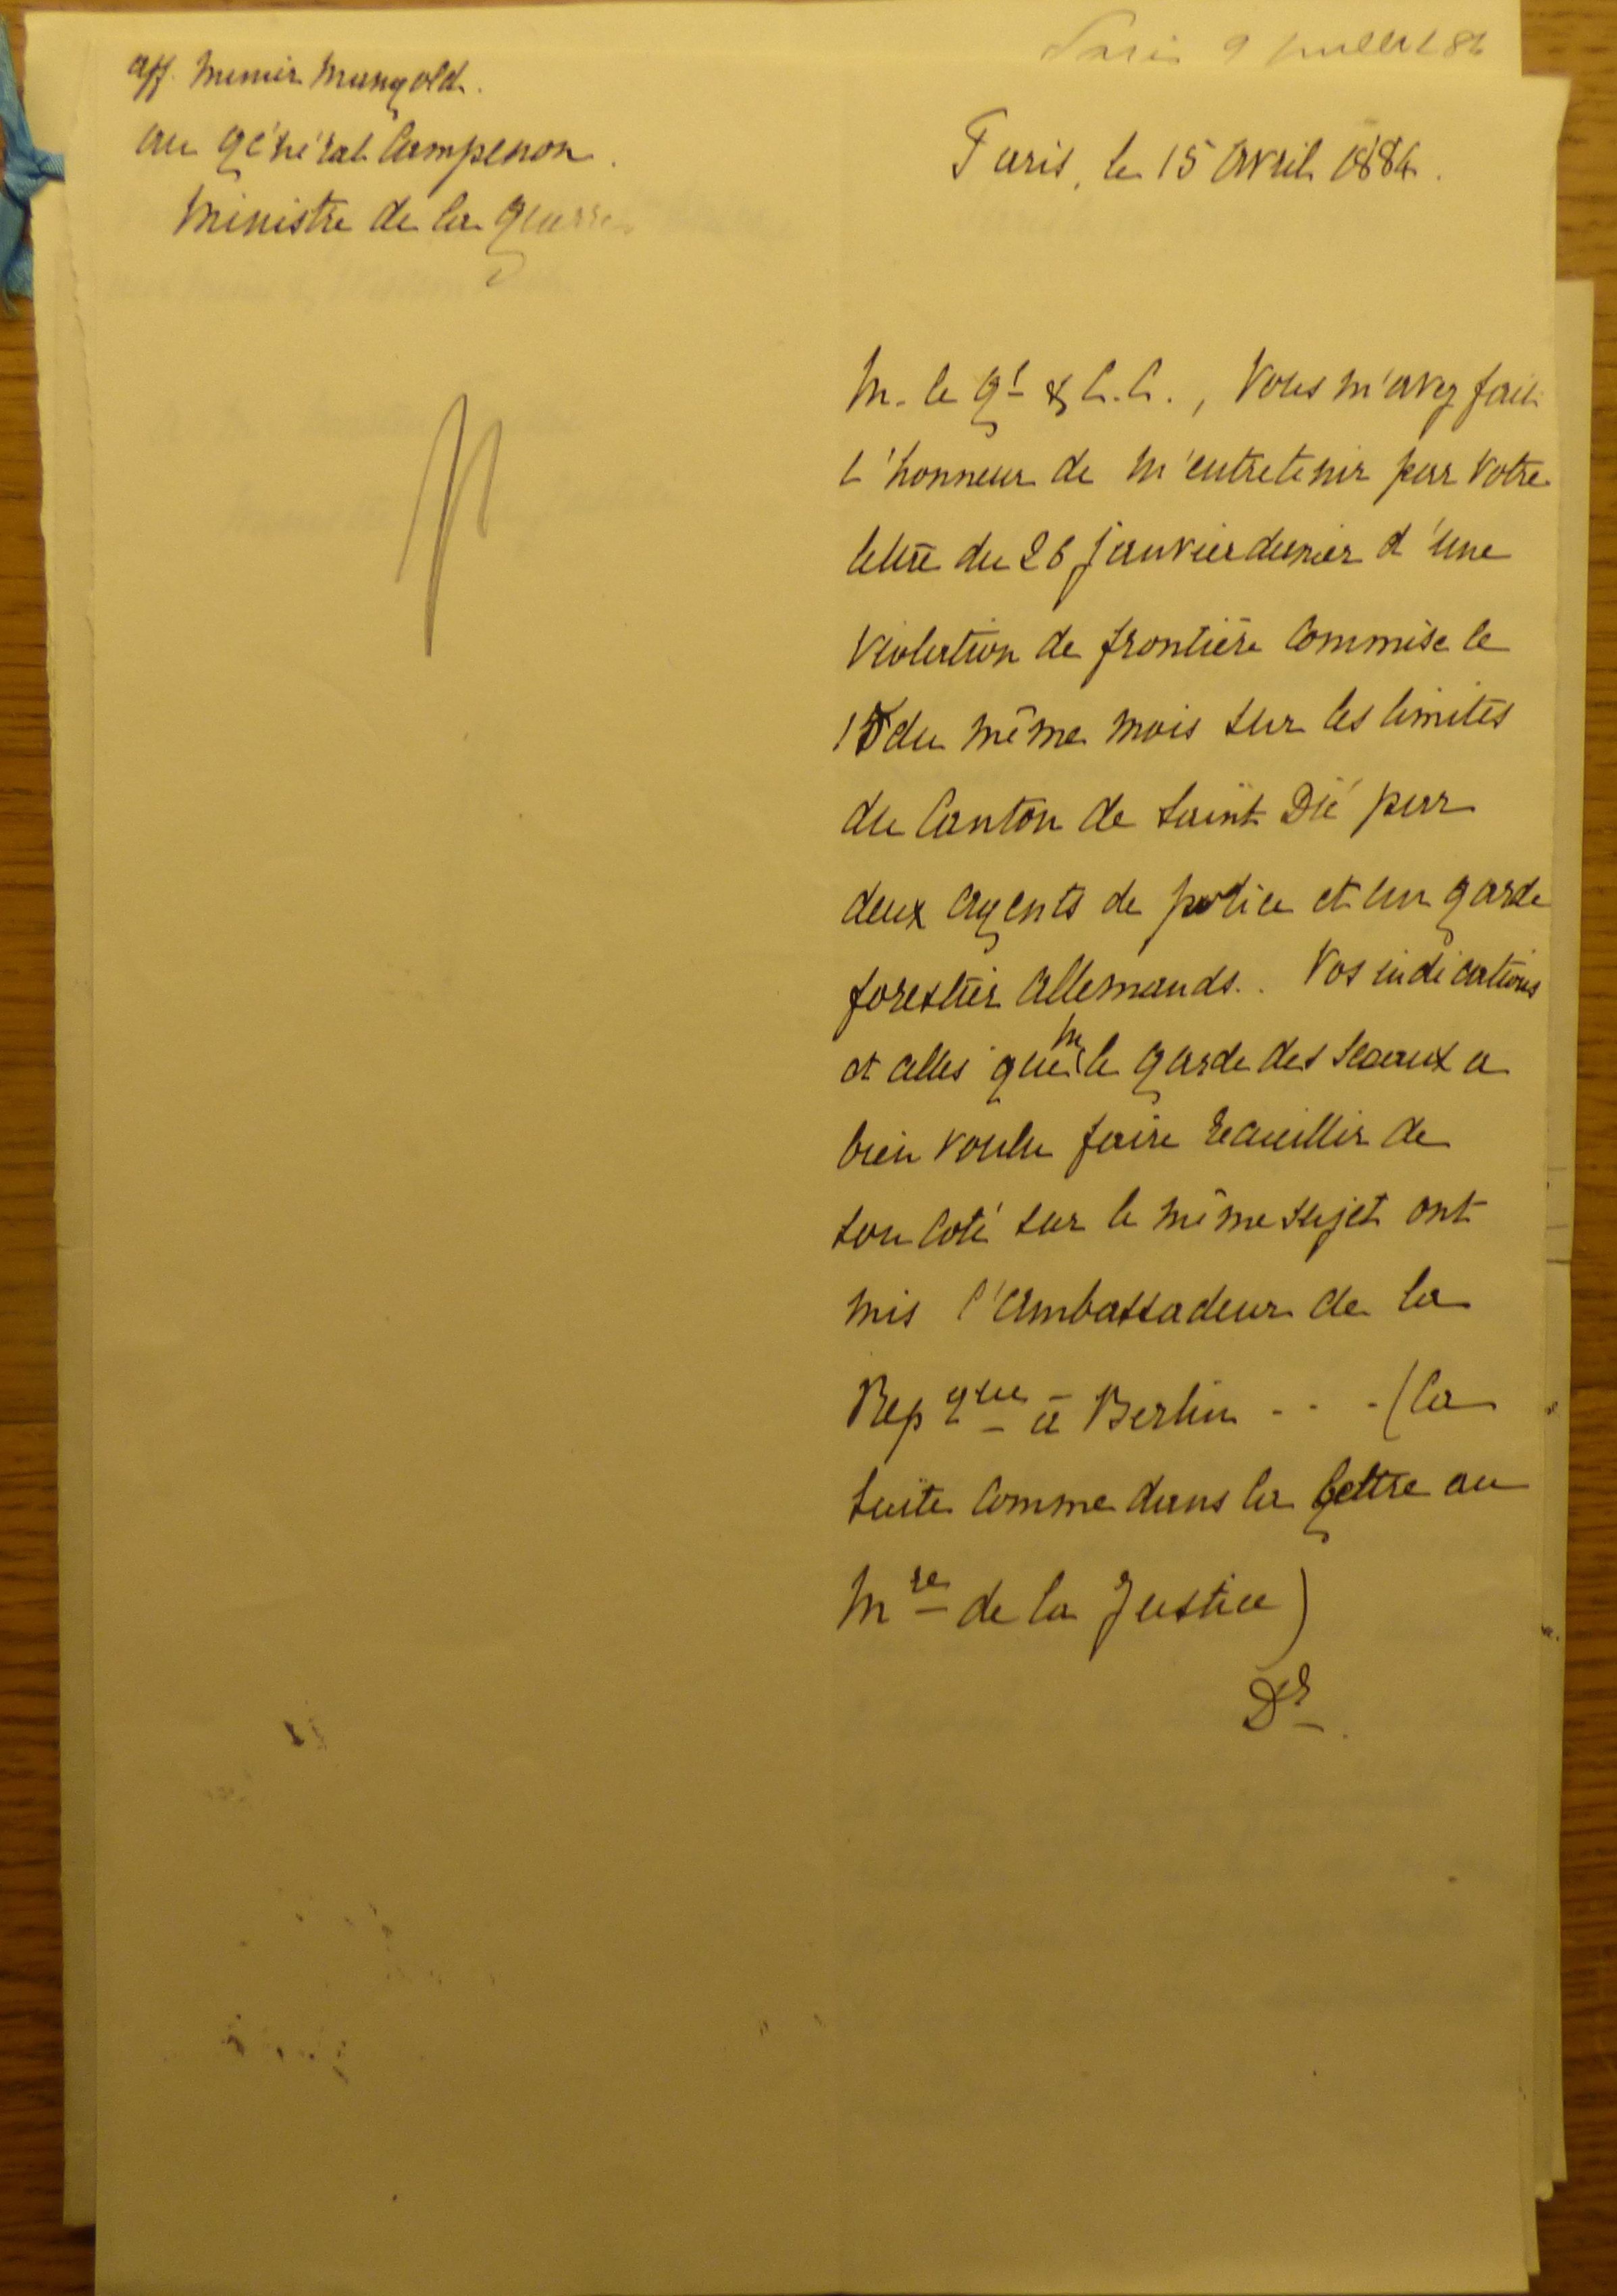 Paris 9 juillet 84
aff. Munier Mangold.
au général Campenon.
Ministre de la guerre
Paris, le 15 avril 1884.
M. le Gal & C. C., Vous m'avez fait
l'honneur de m'entretenir par votre
lettre du 26 janvier dernier d'une
violation de frontière commise le
15 du même mois sur les limites
du Canton de Saint Dié par
deux agents de police et un garde
forestier allemands. Vos indications
et celles que M le garde des Sceaux a
bien voulu faire recueillir de
son coté sur le même sujet ont
mis l'ambassadeur de la
Repque à Berlin - - - (la
suite comme dans la lettre au
Mre de la Justice)